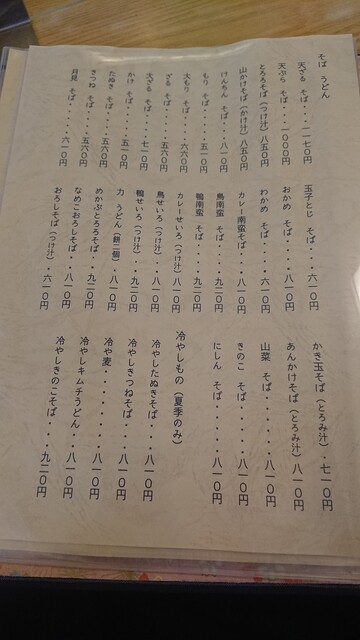 そば うどん
天ざる そば・・一一七〇円
天ぷら そば・・・一〇〇〇円
とろろそば（つけ汁）八五〇円
山かけそば（かけ汁）八五〇円
けんちん そば・・・八一〇円
もり そば・・・・五一〇円
大もり そば・・・・六六〇円
ざる そば・・・・五六〇円
大ざる そば・・・・七一〇円
かけ そば・・・・五一〇円
たぬき そば・・・・五六〇円
きつね そば・・・・五六〇円
月見 そば・・・・・六一〇円
玉子とじ そば・・・六一〇円
おかめ そば・・・・八一〇円
わかめ そば・・・・六一〇円
カレー南蛮そば・・・八一〇円
鳥南蛮 そば・・・・八一〇円
鴨南蛮 そば・・・・九二〇円
カレーせいろ（つけ汁）八一〇円
鳥せいろ（つけ汁）・八一〇円
鴨せいろ（つけ汁）・九二〇円
力 うどん（餅二個）・八一〇円
めかぶとろろそば・・九二〇円
なめこおろしそば・・八一〇円
おろしそば（つけ汁）・六一〇円
かき玉そば（とろみ汁）・七一〇円
あんかけそば（とろみ汁）八一〇円
山菜 そば・・・・・・八一〇円
きのこ そば・・・・・八一〇円
にしん そば・・・・・八一〇円
冷やしもの（夏季のみ）
冷やしたぬきそば・・・八一〇円
冷やしきつねそば・・・八一〇円
冷や麦・・・・・・・・八一〇円
冷やしキムチうどん・・八一〇円
冷やしきのこそば・・・九二〇円